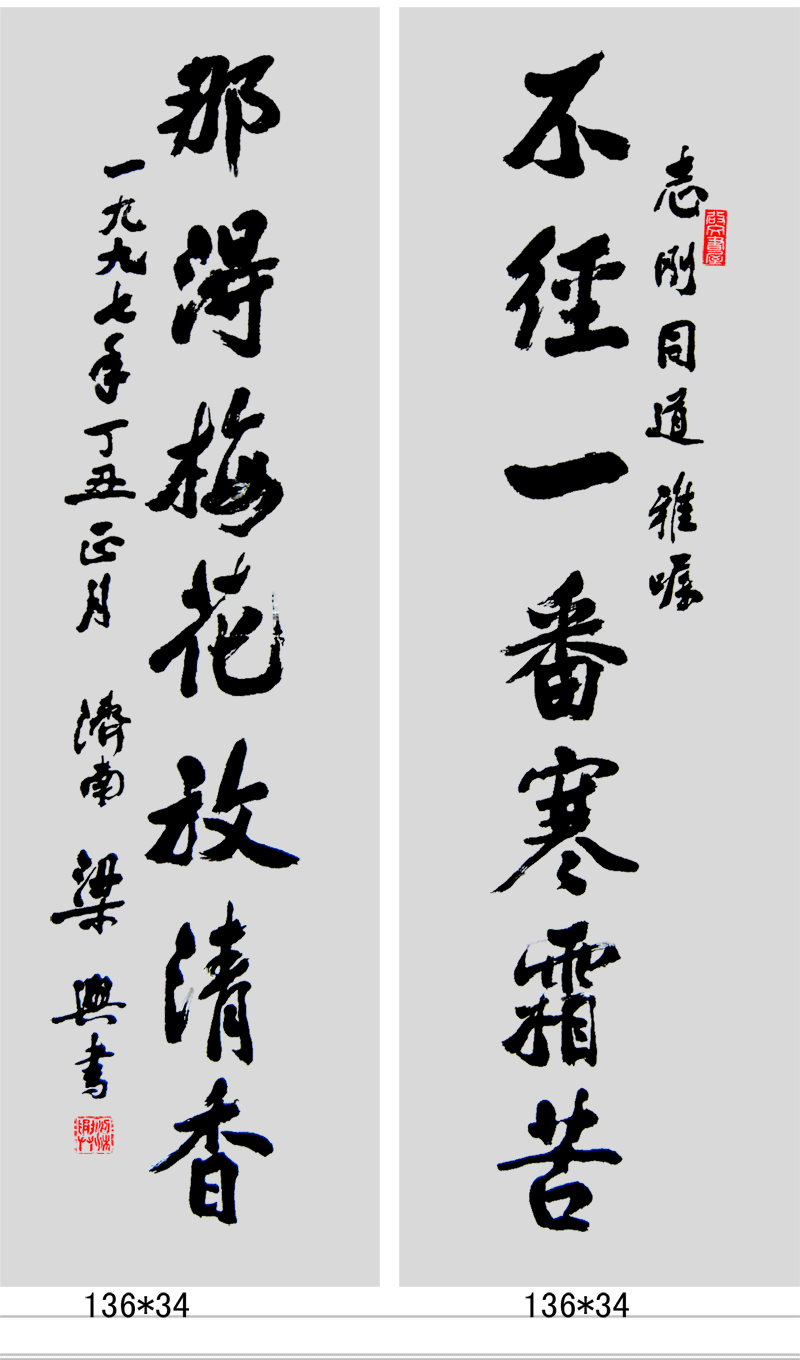 志刚同道雅嘱
不径一番寒霜苦
那得梅花放清香
一九九七年丁丑正月 濟南 梁興书
136*34
136*34